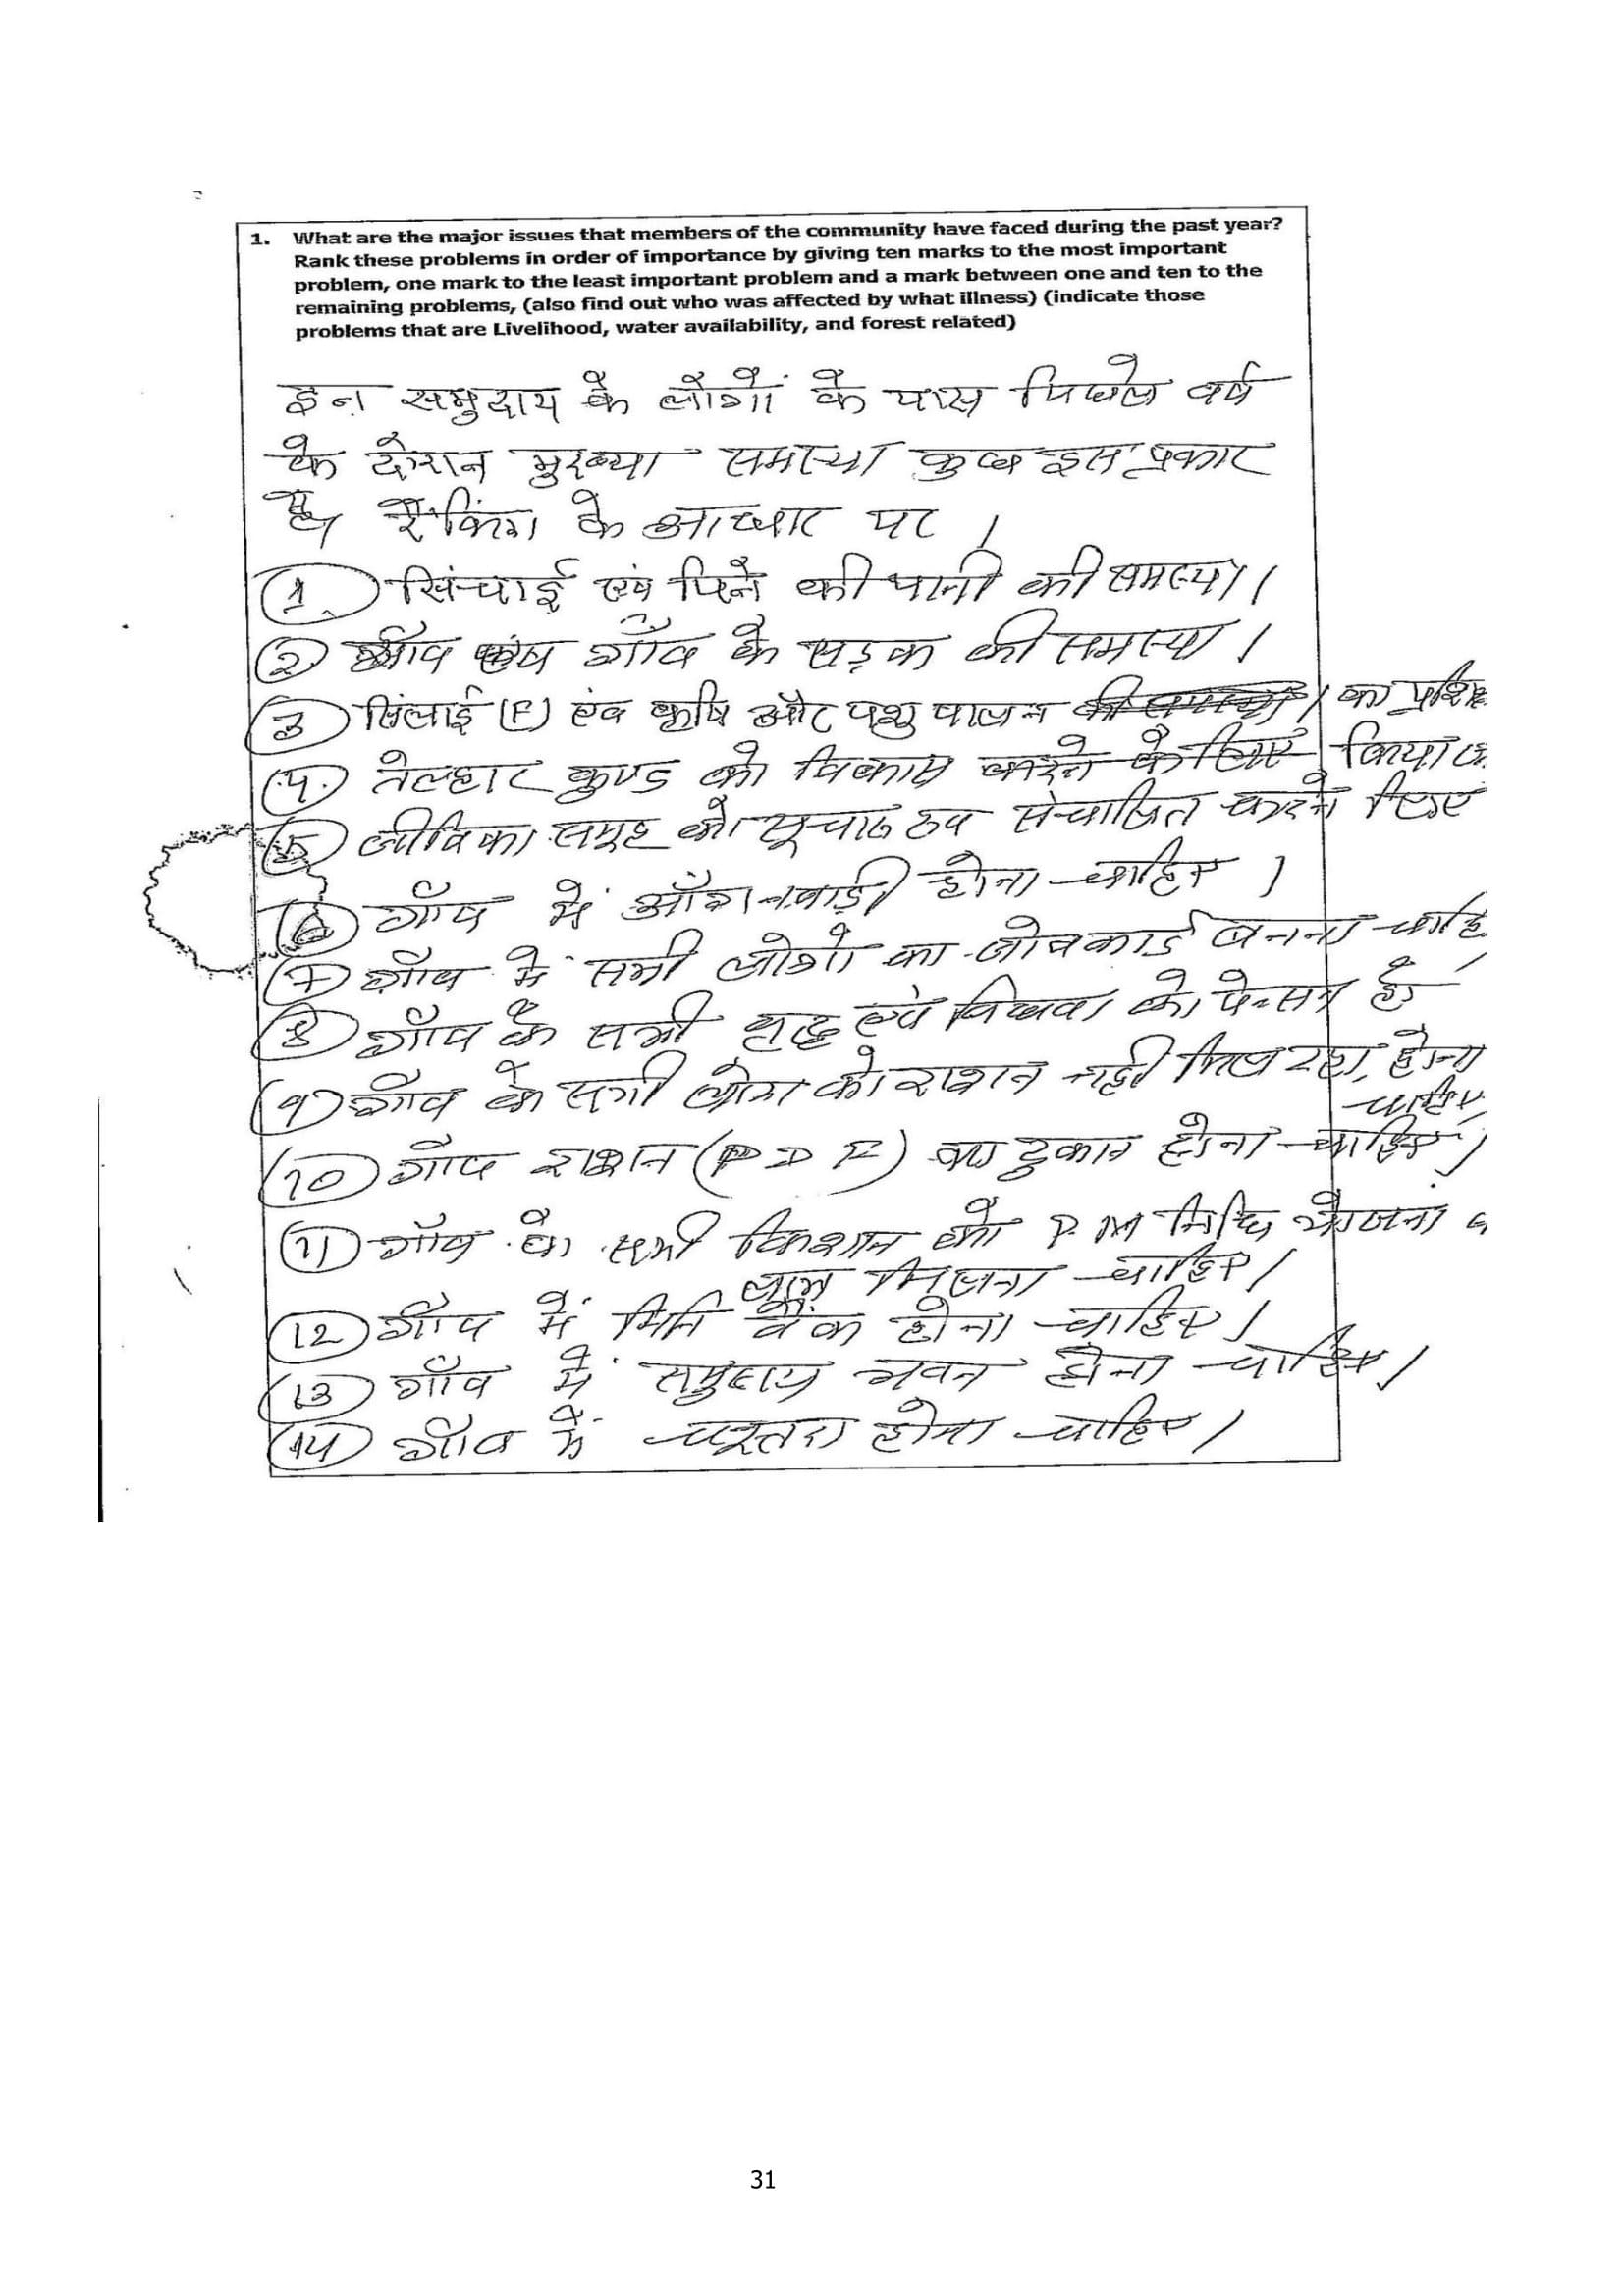 1. What are the major issues that members of the community have faced during the past year?
Rank these problems in order of importance by giving ten marks to the most important
problem, one mark to the least important problem and a mark between one and ten to the
remaining problems, (also find out who was affected by what illness) (indicate those
problems that are Livelihood, water availability, and forest related)
इन समुदाय के लोगों के पास पिछले वर्ष
के दौरान मुख्या समस्या कुछ इस प्रकार
है रैंकिंग के आधार पर ।
1 सिंचाई एंव पिने की पानी की समस्या ।
2 गाँव के सड़क की समस्या ।
3 सिलाई (F) एंव कृषि और पशु पालन का
4. तेल्हार कुण्ड को विकास करने के लिए किया
5 जीविका समूह को सूचारू रुप संचालित करने लिए
6 गाँव में आँगनवाड़ी होना चाहिए ।
7 गाँव में सभी लोगो का जोबकार्ड बनना चाहि
8 गाँव के सभी वृद्ध एंव विधवा को पेन्सन हो ।
9 गाँव के सभी लोग को राशन नही मिल रहा, होना
चाहिए
10 गाँव राशन (PDF) का दुकान होना चाहिए ।
11 गाँव के सभी किशान को P.M निधि योजना
लाभ मिलना चाहिए ।
12 गाँव में मिनि बैंक होना चाहिए ।
13 गाँव में समुदाय भवन होना चाहिए ।
14 गाँव में चबूतरा होना चाहिए ।
31